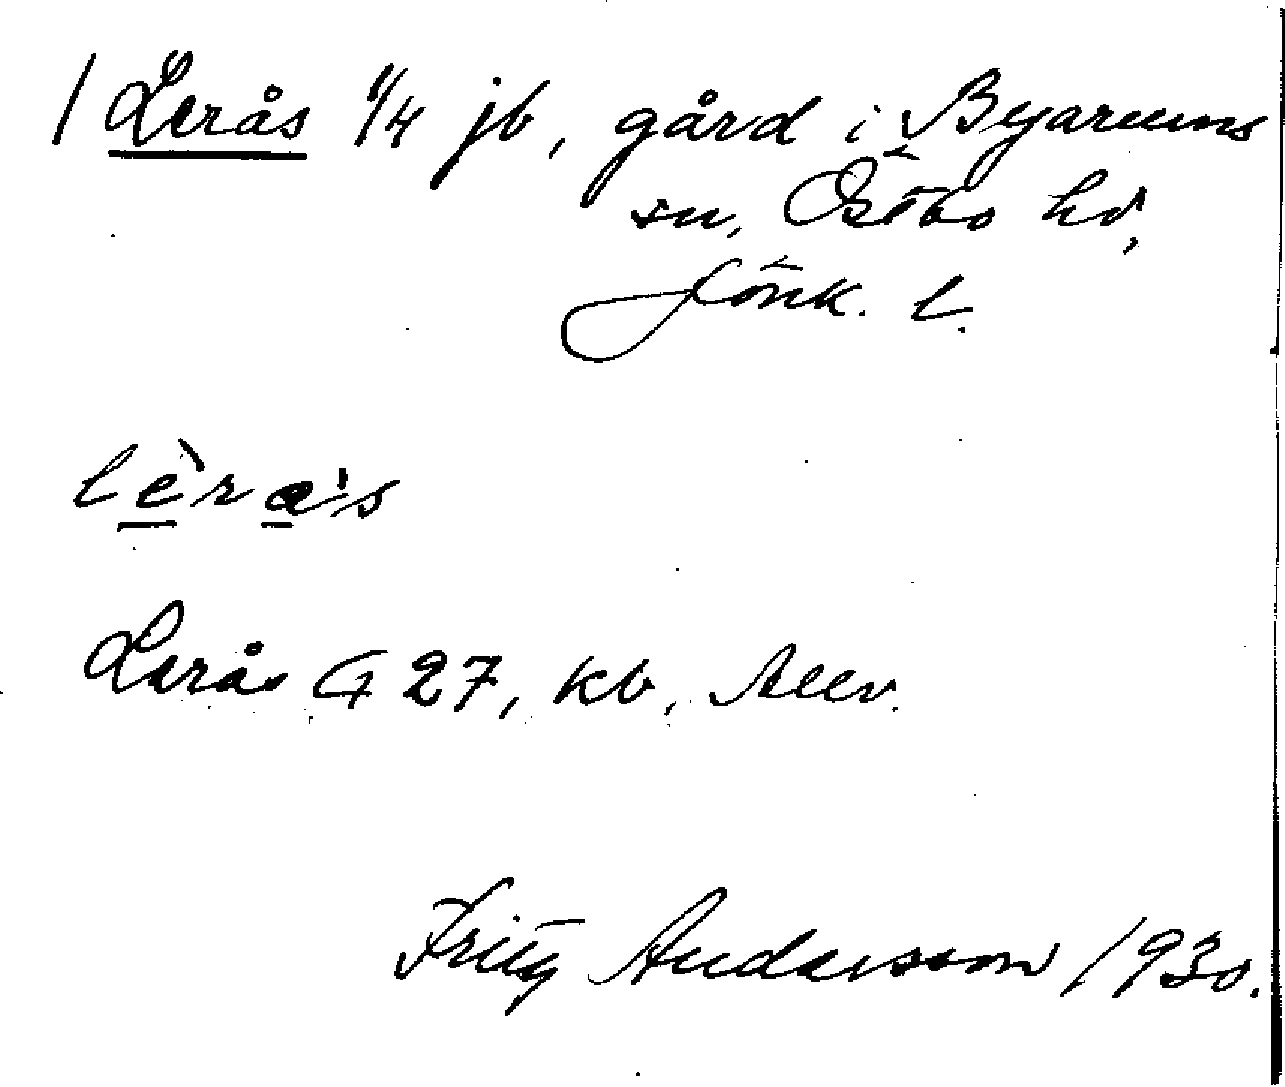 / Lerås 1/4 jb, gård i Byarums
sn, Östbo hd,
Jönk. l.
lèra's
Lerås G 27, kb,
Fritz Andersson 1930.